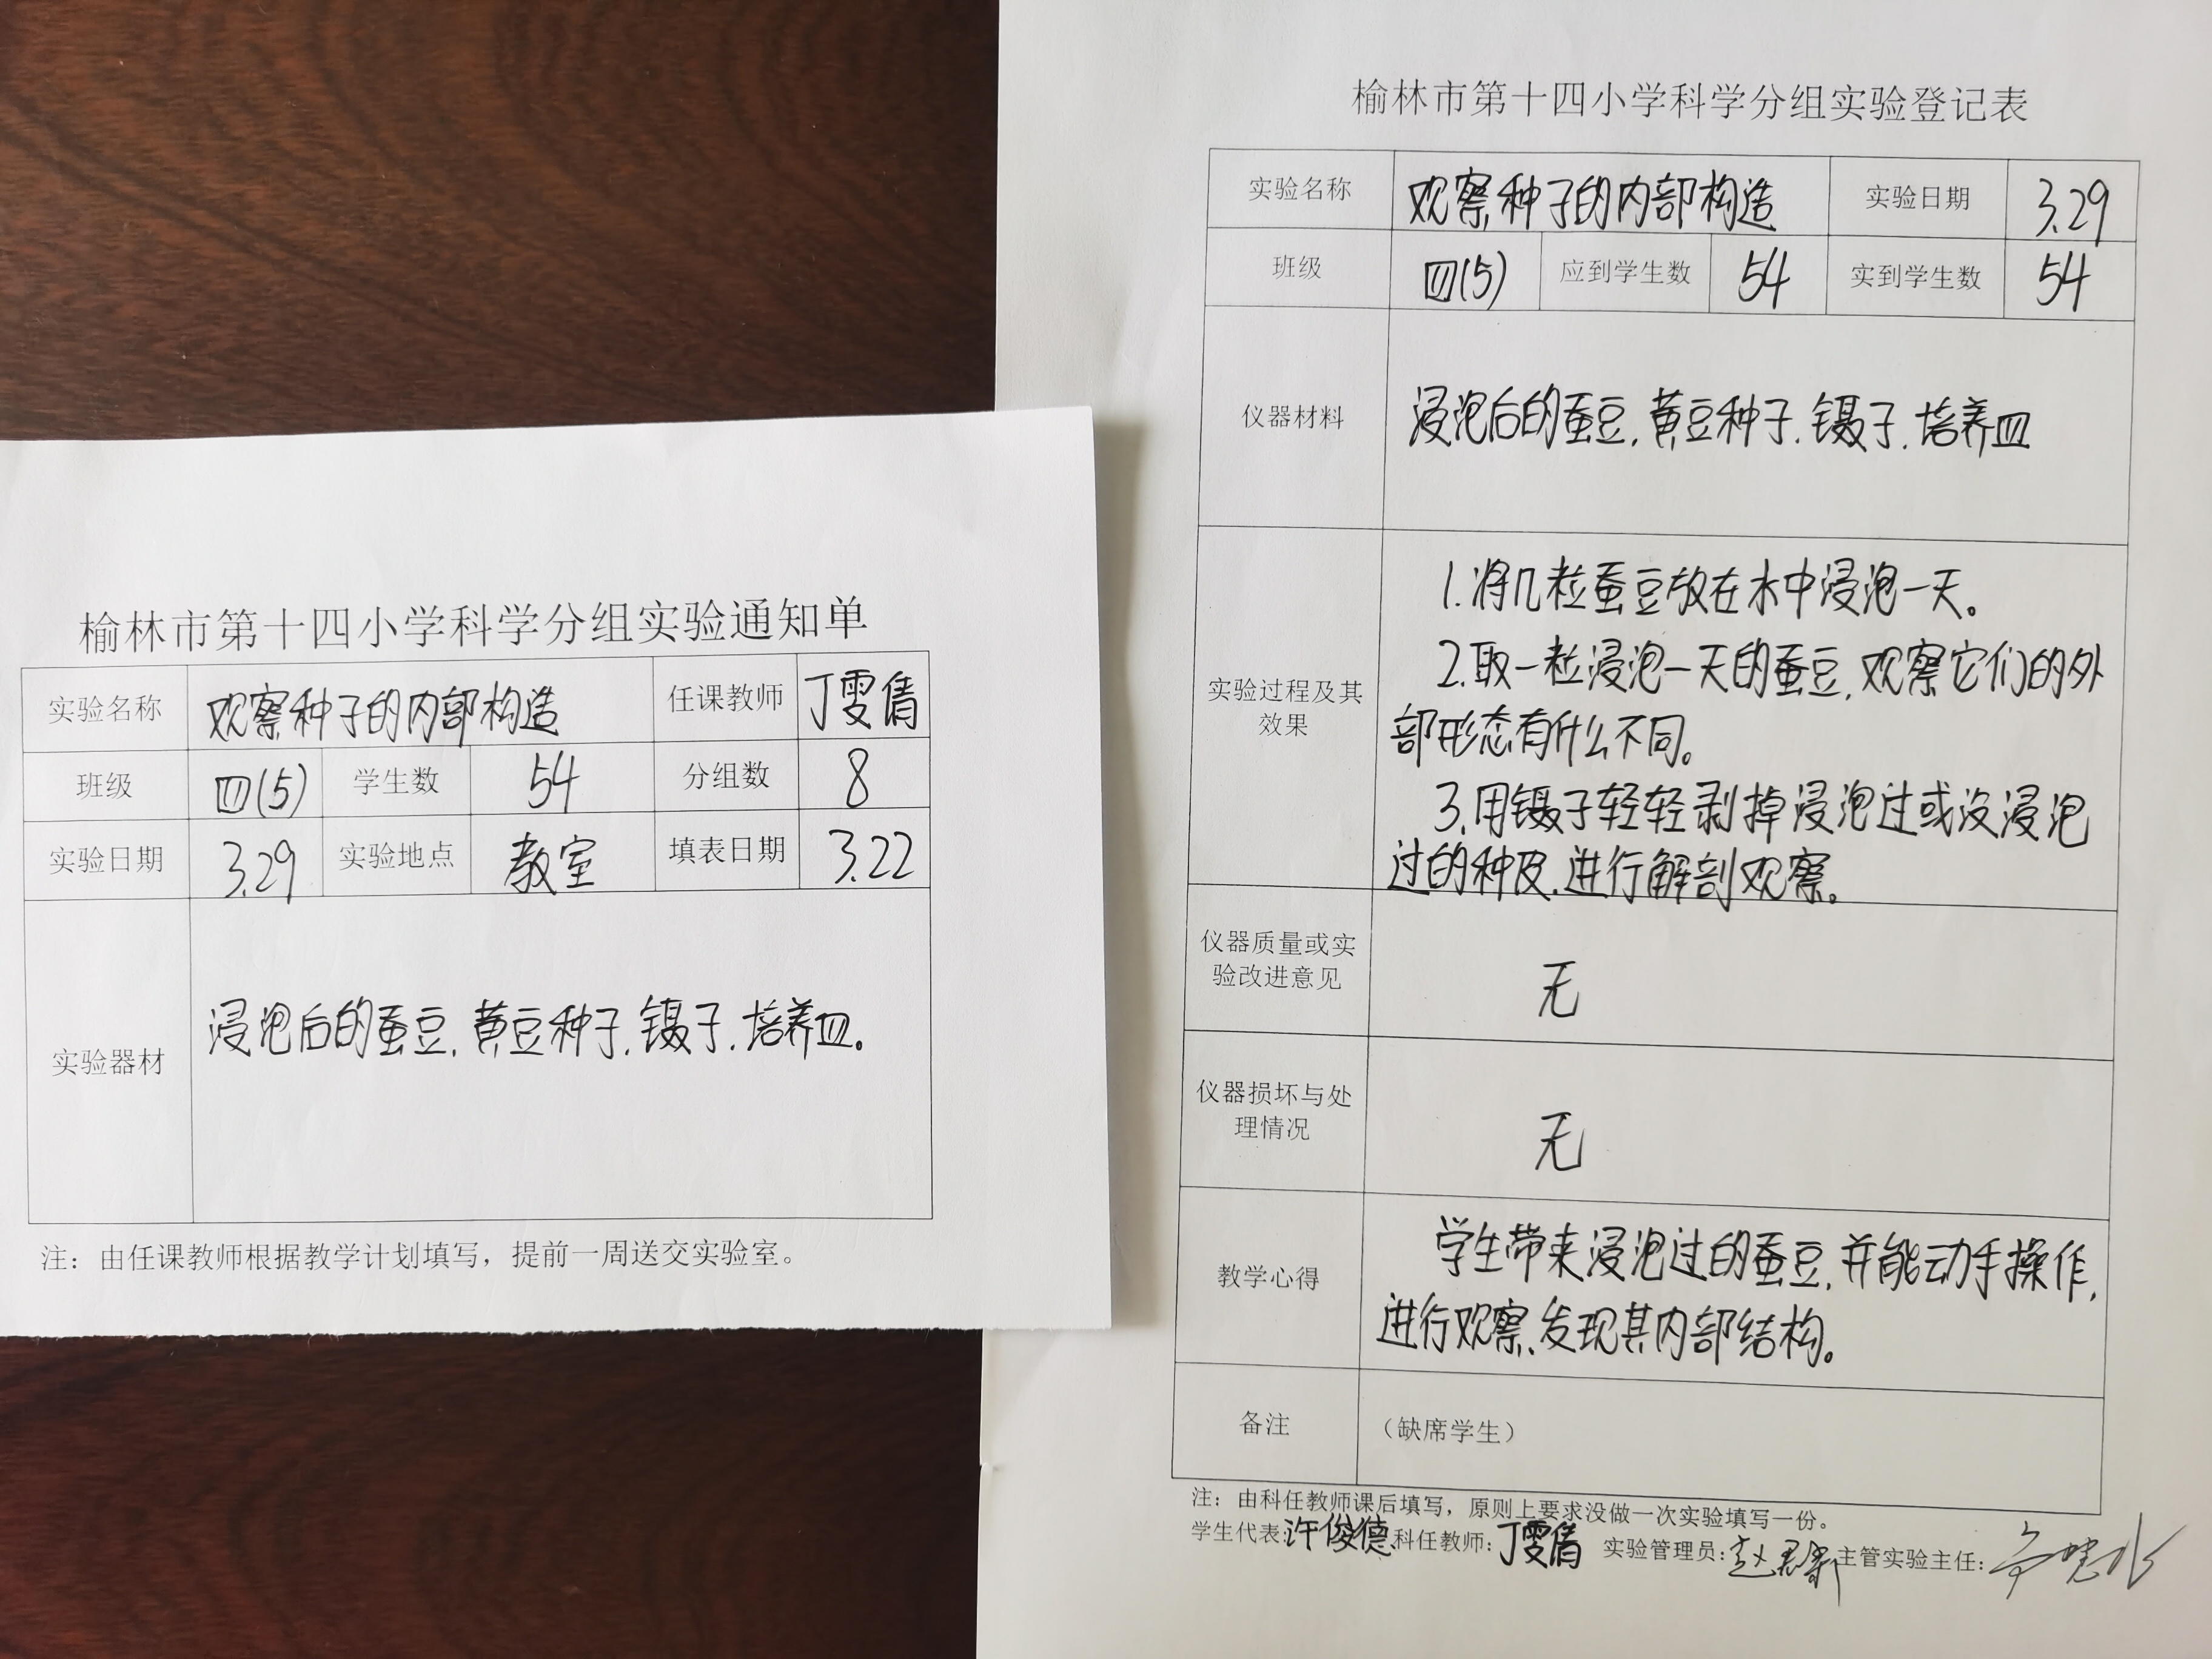 榆林市第十四小学科学分组实验通知单
实验名称 观察种子的内部构造 任课教师 丁雯倩
班级 四(5) 学生数 54 分组数 8
实验日期 3.29 实验地点 教室 填表日期 3.22
实验器材 浸泡后的蚕豆,黄豆种子,镊子,培养皿。
注：由任课教师根据教学计划填写，提前一周送交实验室。
榆林市第十四小学科学分组实验登记表
实验名称 观察种子的内部构造 实验日期 3.29
班级 四(5) 应到学生数 54 实到学生数 54
仪器材料 浸泡后的蚕豆,黄豆种子,镊子,培养皿
实验过程及其
效果
1.将几粒蚕豆放在水中浸泡一天。
2.取一粒浸泡一天的蚕豆,观察它们的外
部形态有什么不同。
3.用镊子轻轻剥掉浸泡过或没浸泡
过的种皮,进行解剖观察。
仪器质量或实
验改进意见
无
仪器损坏与处
理情况
无
教学心得
学生带来浸泡过的蚕豆,并能动手操作,
进行观察,发现其内部结构。
备注 （缺席学生）
注：由科任教师课后填写，原则上要求没做一次实验填写一份。
学生代表:许俊德 科任教师:丁雯倩 实验管理员: 主管实验主任: